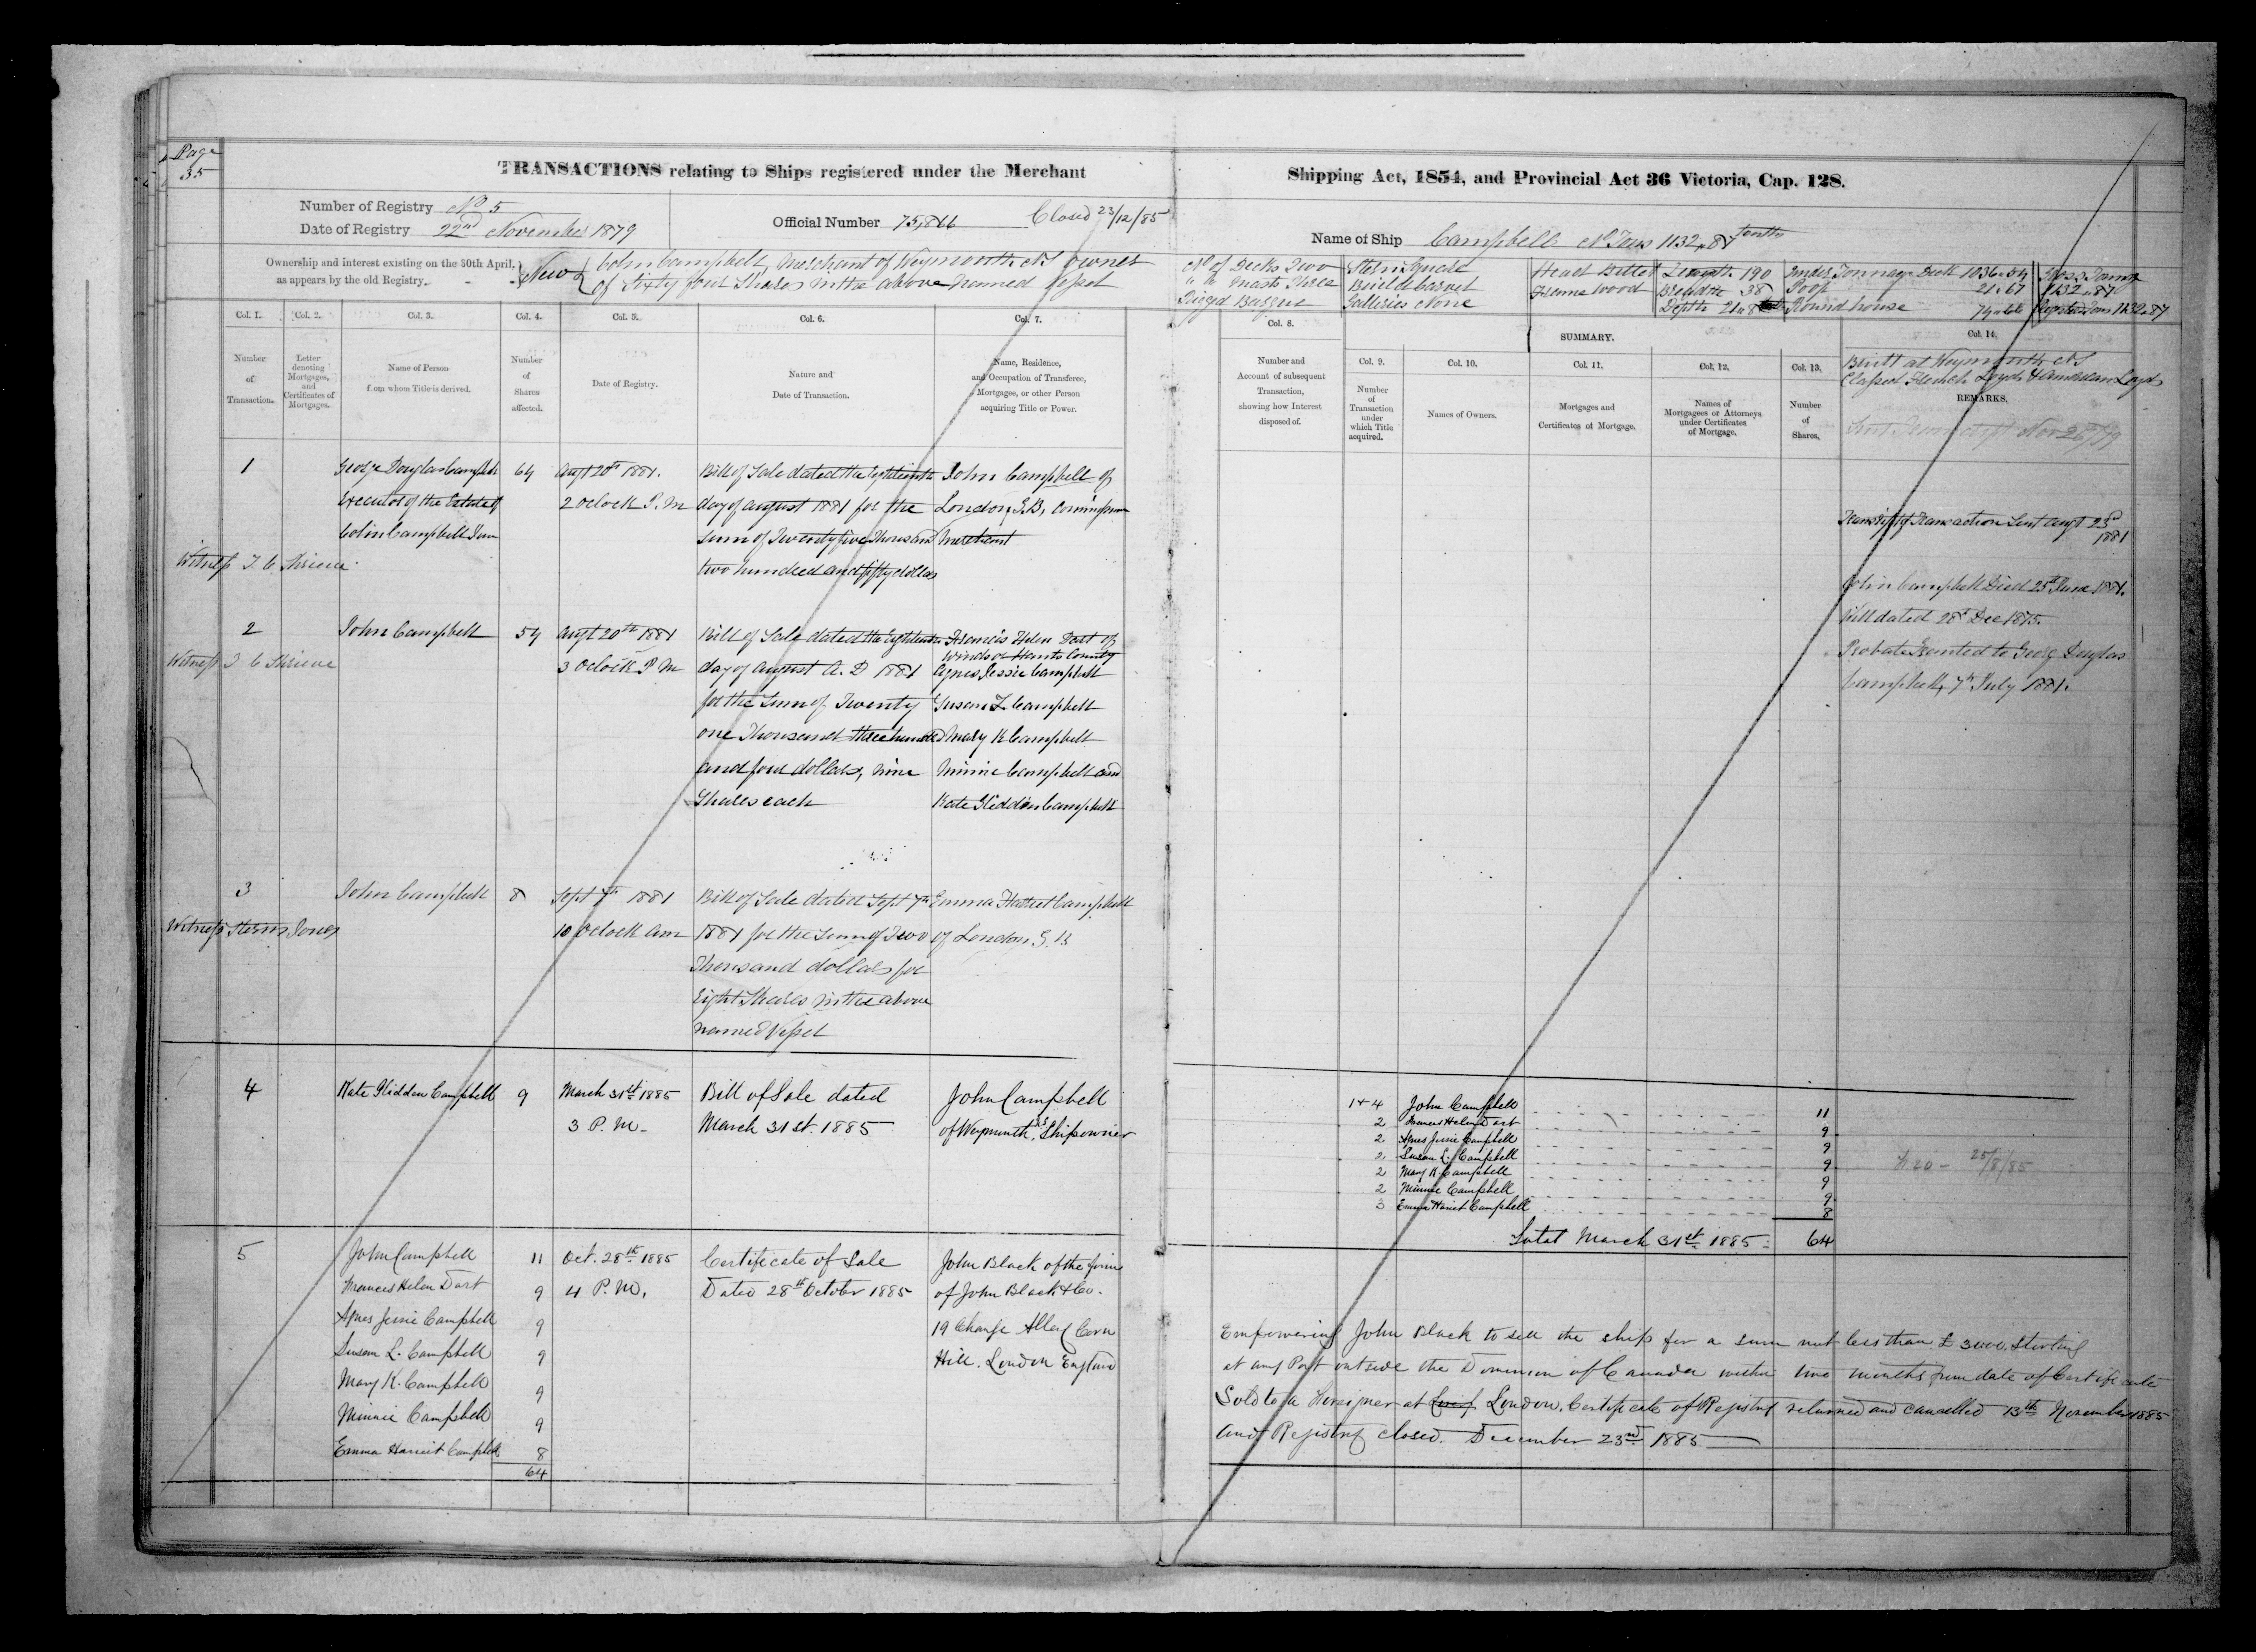 Page
35
TRANSACTIONS relating to Ships registered under the Merchant
Shipping Act, 1854, and Provincial Act 36 Victoria, Cap. 128.
Number of Registry No 5
Date of Registry 22nd November 1879
Official Number 75,866
Closed 23/12/85
Name of Ship Campbell No Tons 1132.87 tenths
Ownership and interest existing on the 30th April,
as appears by the old Registry.
New { Colin Campbell, Merchant of Weymouth NS owner
of Sixty four Shares in the above named Vessel
No of Decks Two
" " Masts Three
Rigged Barque
Stern Square
Build Carvel
Galleries None
Head Billet
Frame Wood
Length 190
Breadth 38
Depth 21.8
Under Tonnage Deck 1036.54
Poop 21.67
Round house 74.66
Gross Tonnage
1132.87
Register Tons 1132.87
Col. 1.
Number
of
Transaction.
Col. 2.
Letter
denoting
Mortgages,
and
Certificates of
Mortgages.
Col. 3.
Name of Person
from whom Title is derived.
Col. 4.
Number
of
Shares
affected.
Col. 5.
Date of Registry.
Col. 6.
Nature and
Date of Transaction.
Col. 7.
Name, Residence,
and Occupation of Transferee,
Mortgagee, or other Person
acquiring Title or Power.
Col. 8.
Number and
Account of subsequent
Transaction,
showing how Interest
disposed of.
SUMMARY.
Col. 9.
Number
of
Transaction
under
which Title
acquired.
Col. 10.
Names of Owners.
Col. 11.
Mortgages and
Certificates of Mortgage.
Col. 12.
Names of
Mortgagees or Attorneys
under Certificates
of Mortgage.
Col. 13.
Number
of
Shares,
Col. 14.
Built at Weymouth NS
Classed French Loyds & American Loyds
REMARKS.
Sent Transcript Nov 26/79
1
George Douglas Campbell
Executor of the Estate of
Colin Campbell Senr
Witness T. C Shreve
64
Augt 20th 1881.
2 Oclock P. M
Bill of Sale dated the Eighteenth
day of august 1881 for the
sum of Twenty five Thousand
two hundred and fifty dollars
John Campbell of
London, G.B, Commission
Merchant
Transcript of Transaction Sent Augt 23rd
1881
Colin Campbell Died 25th June 1881.
Will dated 28th Dec 1875.
Probate Granted to Georg Douglas
Campbell, 7th July 1881.
2
John Campbell
Witness T. C Shreve
54
Augt 20th 1881
3 Oclock P M
Bill of Sale dated the Eighteenth
day of august A. D 1881
for the Sum of Twenty
one Thousand three hundred
and four dollars, nine
Shares each
Francis Helen Dart of
Windsor Hants County
Agnes Jessie Campbell
Susan L Campbell
Mary K Campbell
Minnie Campbell and
Kate Glidden Campbell
3
John Campbell
Witness Jones
8
Sept 7th 1881
10 Oclock am
Bill of Sale dated Sept 7th
1881 for the Sum of Two
Thousand dollars for
Eight Shares in the above
named Vessel
Emma Harriet Campbell
of London G. B
4
Kate Glidden Campbell
9
March 31st 1885
3 P. M.
Bill of Sale dated
March 31st 1885
John Campbell
of Weymouth, NS, Shipowner
1+4 John Campbell 11
2 Frances Helen Dart 9
2 Agnes Jessie Campbell 9
2 Susan L. Campbell 9
2 Mary K Campbell 9
2 Minnie Campbell 9
3 Emma Hariet Campbell 8
Total March 31st 1885 64
25/8/85
5
John Campbell 11
Frances Helen Dart 9
Agnes Jessie Campbell 9
Susan L. Campbell 9
Mary K. Campbell 9
Minnie Campbell 9
Emma Harriet Campbell 8
64
Oct. 28th 1885
4 P. M.
Certificate of Sale
Dated 28th October 1885
John Black of the firm
of John Black & Co.
19 Change Alley Corn
Hill. London England
Empowering John Black to sell the ship for a sum not less than £3000. Sterling
at any Port outside the Dominion of Canada within two months from date of Certificate
Sold to a Foreigner at London. Certificate of Registry returned and cancelled 13th November 1885
and Registry closed. December 23rd 1885